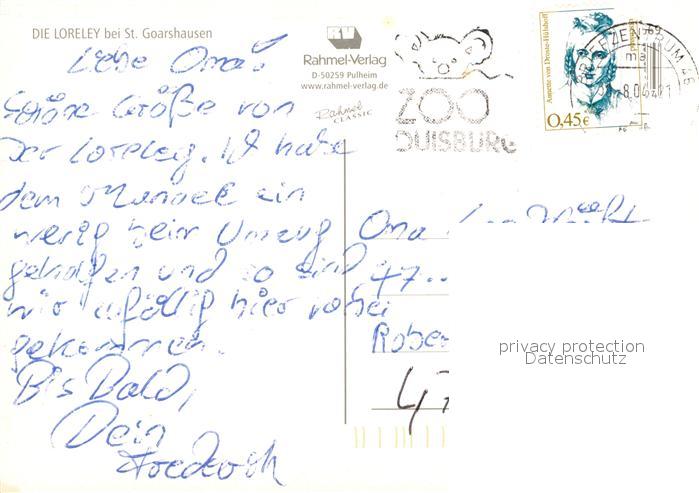 DIE LORELEY bei St. Goarshausen
RV
Rahmel-Verlag
D-50259 Pulheim
www.rahmel-verlag.de
Rahmel
CLASSIC
ZOO
DUISBURG
Annette von Droste-Hülshoff
0,45€
BRIEFZENTRUM 46
Liebe Oma!
Schöne Grüße von
der Loreley. Ich habe
dem Manuel ein
wenig beim Umzug
geholfen und so sind
wir zufällig hier vorbei
gekommen.
Bis Bald,
Dein
Frederik
Oma
47
Rober
47
privacy protection
Datenschutz